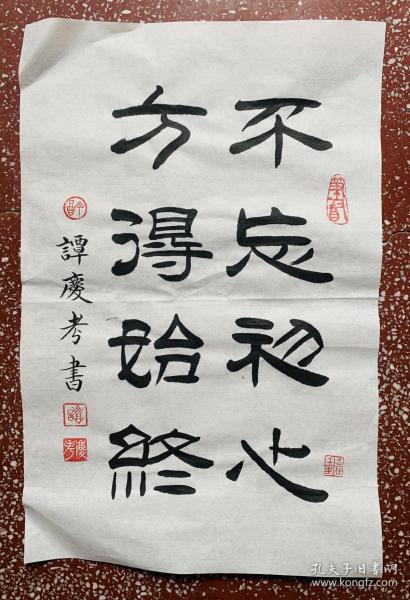 不忘初心
方得始终
譚慶考書
孔夫子旧书网
www.kongfz.com